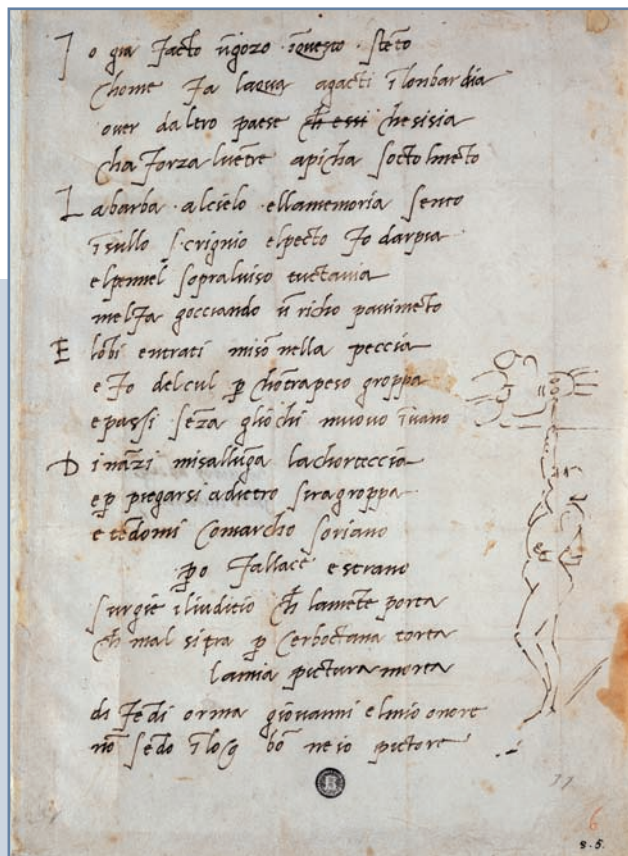 Jo gia facto ūgozo īquesto stēto
chome fa laqua agacti ī lonbardia
over daltro paese ch̄ essi chesisia
cha forza lvētre apicha socto lmēto
La barba alcielo ellamemoria sento
īsullo scrignio elpecto fo darpia
elpennel sopraluiso tuctavia
melfa gocciando ū richo pavimēto
E lōbi entrati misō nella peccia
e fo delcul p̄ chōtrapeso groppa
epassi sēza gliochi muovo īvano
Dināzi misallūga lachorteccia
ep̄ piegarsi adietro siragroppa
e tēdomi comarcho soriano
p̄o fallace e strano
surgie iliuditio ch̄ lamēte porta
ch̄ mal sitra p̄ cerboctana torta
lamia pictura morta
di fēdi orma giovanni elmio onore
nō sēdo ī bō ne io pictore
6
8·5·